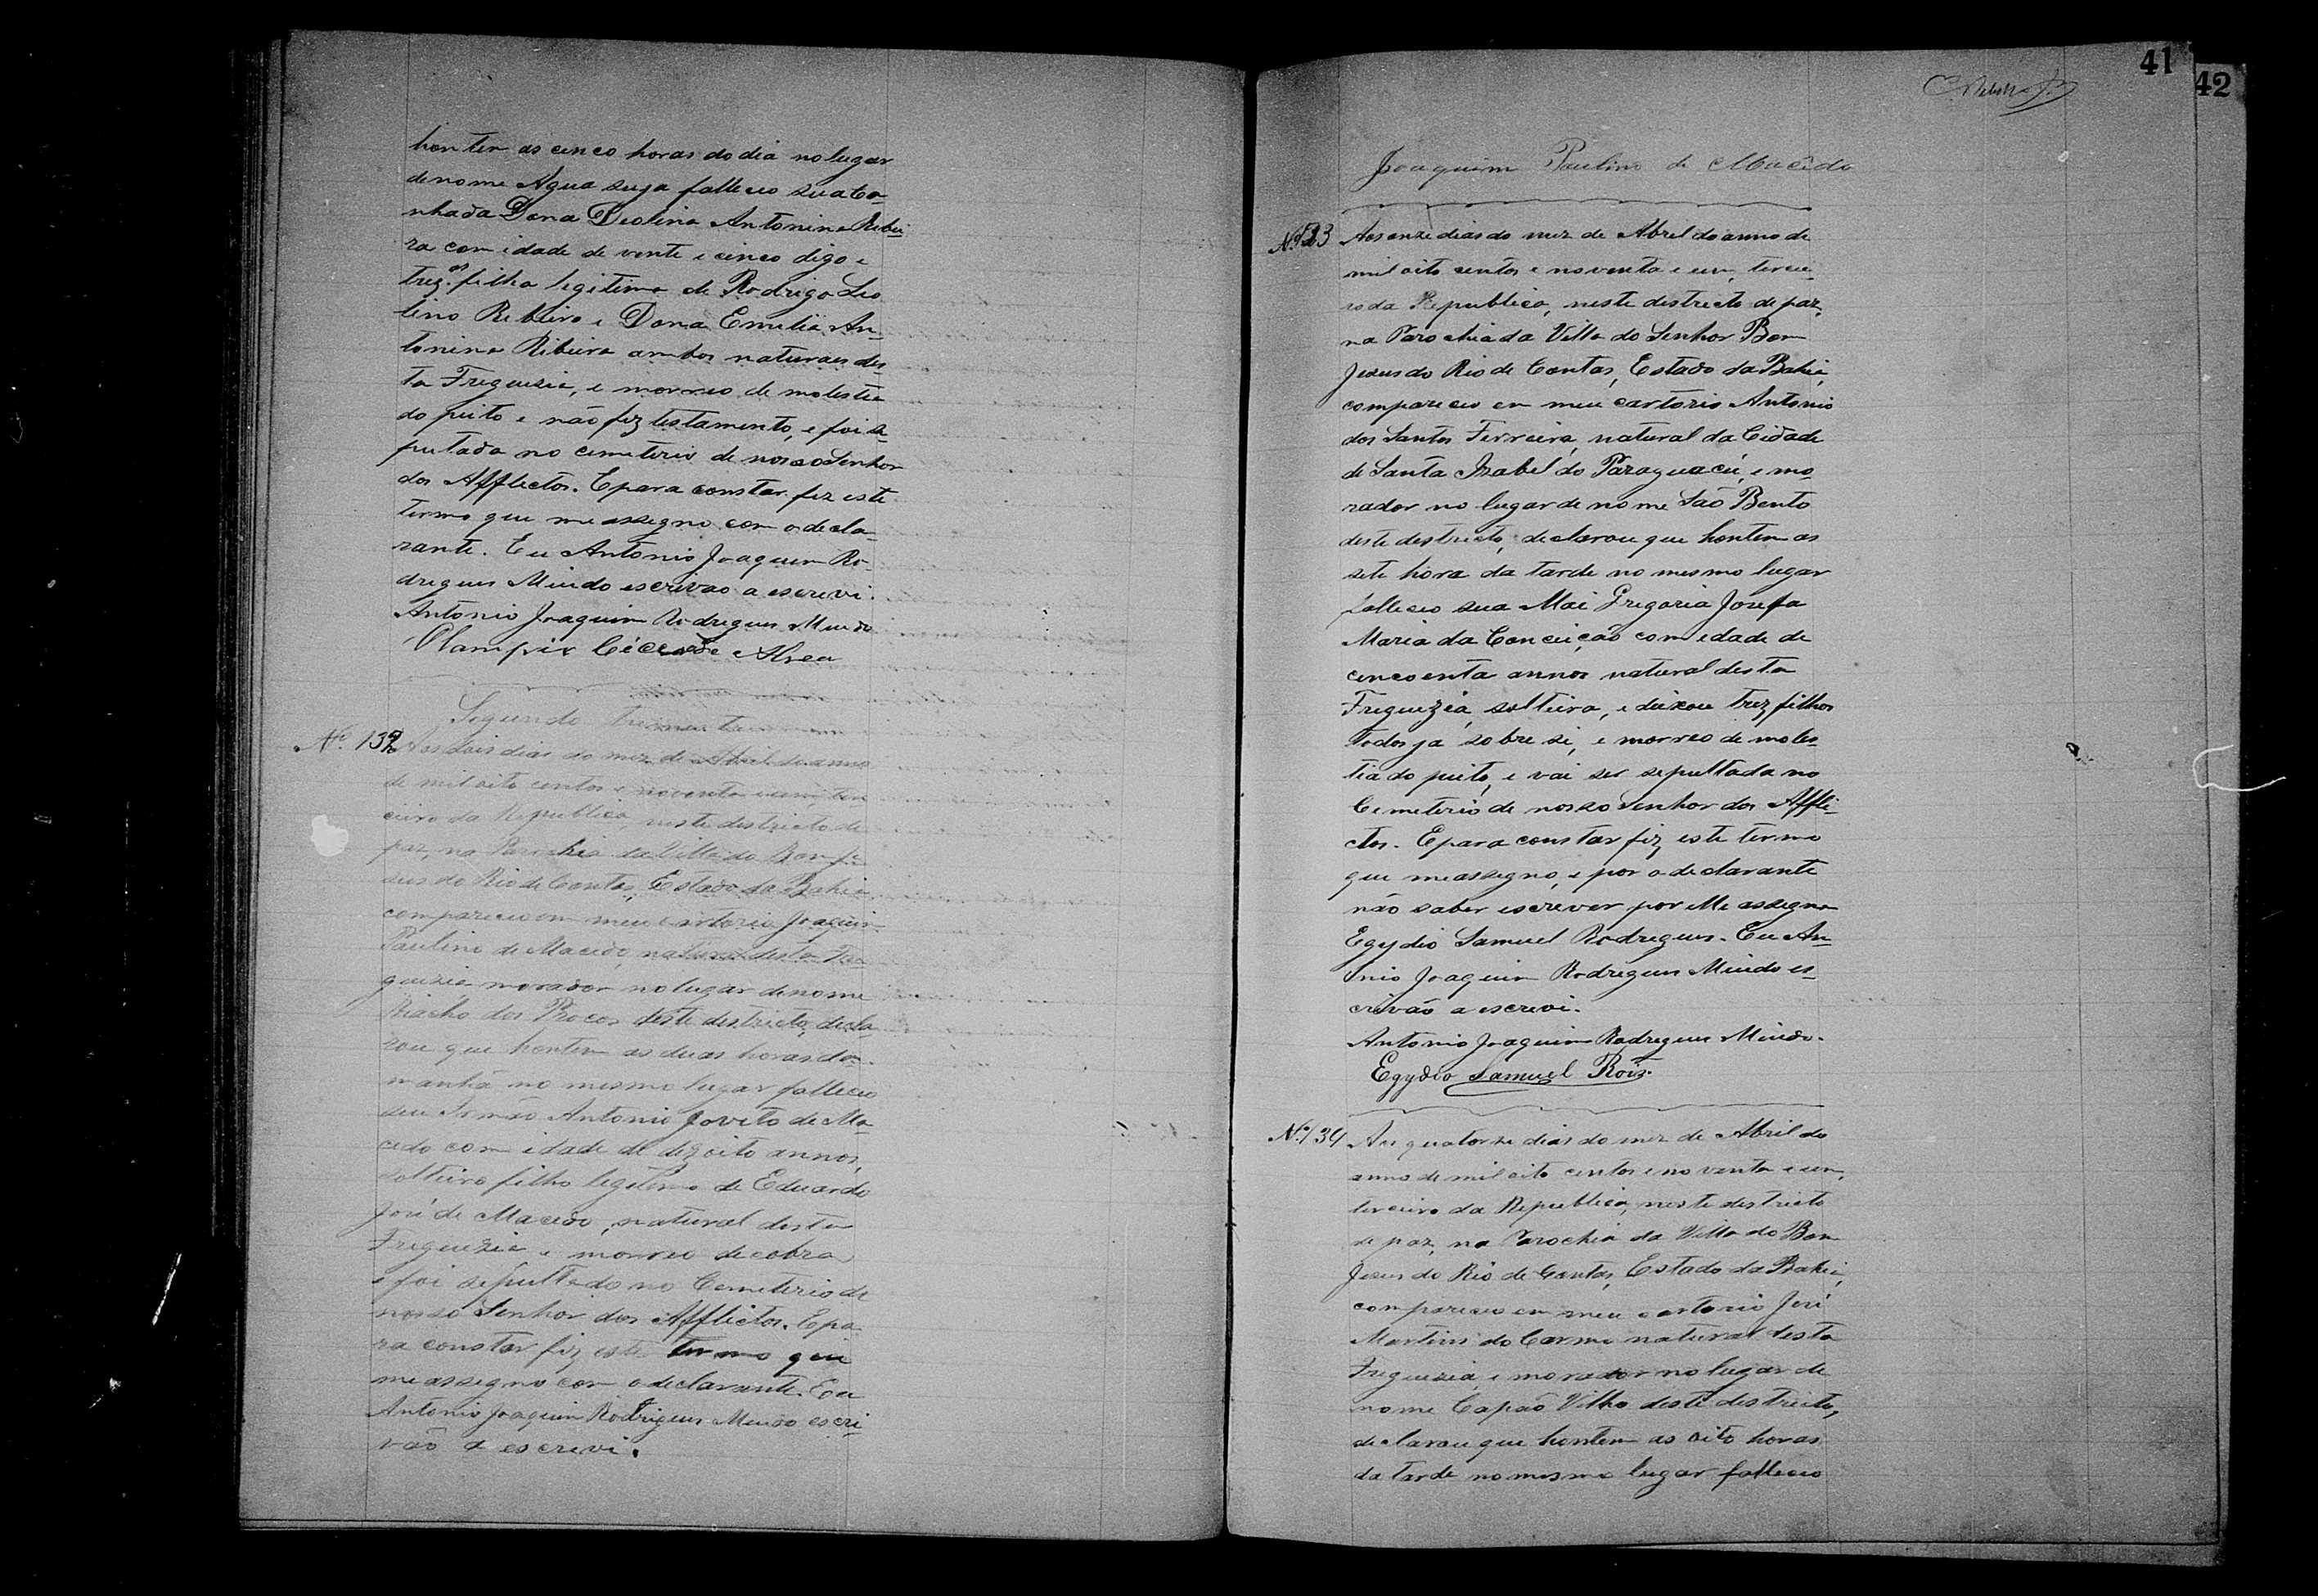 hontem as cinco horas do dia no lugar
de nome Agua suja falleceo sua Co-
nhada Dona Deolina Antonina Ribei-
ra com idade de vente e cinco digo e
trez filha legitima de Rodrigo Leo
lino Ribeiro e Dona Emilia An-
tonina Ribeira ambos naturaes des-
ta Freguezia, e morreo de molestia
do peito e não fez testamento, e foi se-
putada no cemeterio de nosso Senhor
dos Afflectos. E para constar fiz este
termo que me assegno com o decla-
rante. Eu Antonio Joaquim Ro-
drigues Miudo escrivão a escrevi.
Antonio Joaquim Rodrigues Miudo
Olampio Abreu
Segundo
Nº. 132 Aos dois dias do mez de Abril do anno
de mil oito centos e noventa e um, ter
ceiro da Republica, neste destricto de
paz, na Parochia da Villa do Bom Je-
sus do Rio de Contas, Estado da Bahia
compareceo em meu cartorio Joaquim
Paulino de Macedo, natural desta Fre-
guezia morador no lugar de nome
Riacho dos Porcos deste destricto, decla-
rou que hontem as duas horas da
manhã no mesmo lugar falleceo
seu Irmão Antonio Jovito de Ma-
cedo com idade de dezoito annos,
solteiro filho legitimo de Eduardo
José de Macedo, natural desta
Freguezia e morreo de cobra
e foi sepultado no Cemeterio de
nosso Senhor dos Afflictos. E pa-
ra constar fiz este termo que
me assegno com o declarante. Eu
Antonio Joaquim Rodrigues Miudo escri-
vão a escrevi.
41
42
Joaquim Paulino de Macêdo
Nº 133 Aos onze dias do mez de Abril do anno de
mil oito centos e noventa e um, tercei-
ro da Republica, neste destricto de paz,
na Parochia da Villa do Senhor Bom
Jesus do Rio de Contas, Estado da Bahia,
compareceo em meu cartorio Antonio
dos Santos Ferreira, natural da Cidade
de Santa Izabel do Paraguacú, e mo-
rador no lugar de nome São Bento
deste destricto, declarou que hontem as
sete hora da tarde no mesmo lugar
falleceo sua Mai Gregoria Josefa
Maria da Conceição com edade de
cincoenta annos natural desta
Freguezia, solteira, e deixou trez filhos
todos ja sobre si, e morreo de moles-
tia do peito, e vai ser sepultada no
Cemeterio de nosso Senhor dos Affli-
ctos. E para constar fiz este termo
que me assegno, e por o declarante
não saber escrever por elle assegna
Egydio Samuel Rodregues. Eu An-
nio Joaquim Rodregues Miudo es-
crivão a escrevi.
Antonio Joaquim Rodregues Miudo.
Egydio Samuel Roiz.
Nº 134 Aos quatorze dias do mez de Abril do
anno de mil oito centos e noventa e um,
terceiro da Republica, neste destricto
de paz, na Parochia da Villa do Bom
Jesus do Rio de Contas, Estado da Bahia,
compareceo em meu cartorio José
Martins do Carmo natural desta
Freguezia, e morador no lugar de
nome Capão Vilho deste destricto,
declarou que hontem as oito horas
da tarde no mesmo lugar falleceo